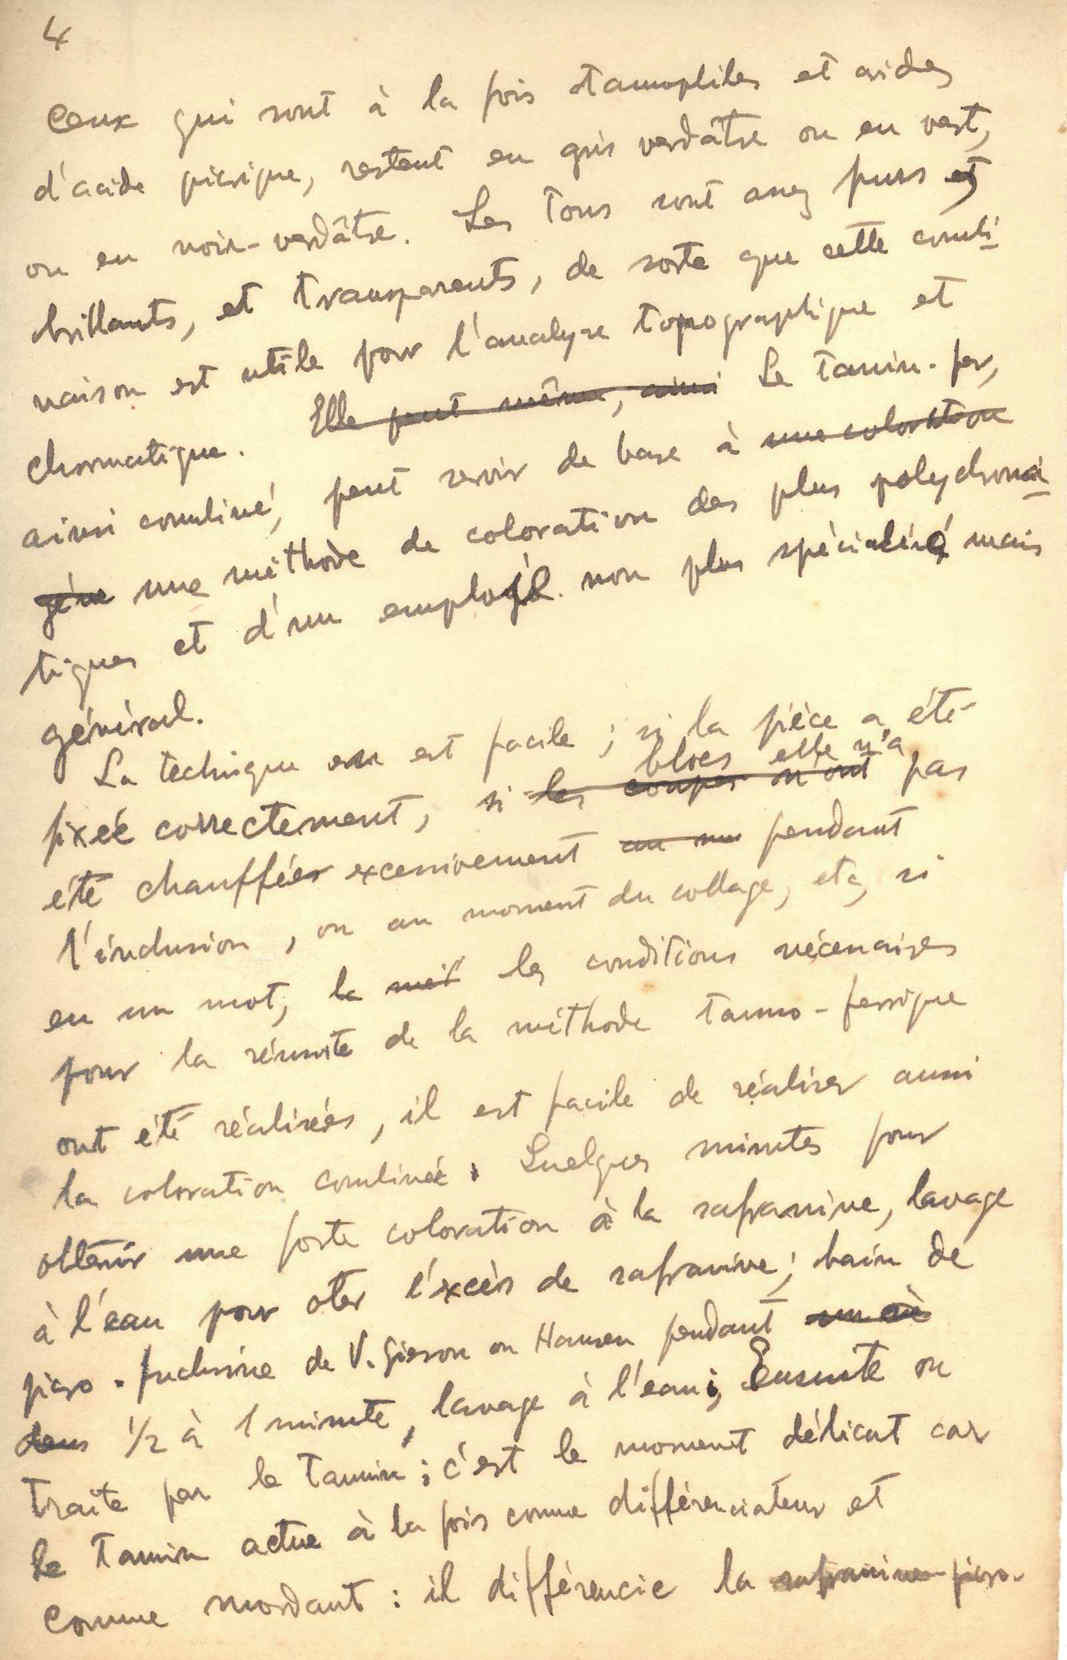 4
Ceux qui sont à la fois tannophiles et avides
d'acide picrique, restent en gris verdâtre ou en vert,
ou en noir-verdâtre. Les tons sont assez purs et
brillants, et transparents, de sorte que cette combi
naison est utile pour l'analyse topographique et
chormatique. Elle peut même, ainsi Le tanin-fer,
ainsi combiné, peut servir de base à une coloration
géne une méthode de coloration des plus polychroma
tiques et d'un emploi non plus spécialisé, mais
général.
La technique en est facile ; si la pièce a été
fixée correctement, si les coupes n'ont blocs elle n'a pas
été chauffée excessivement au mo pendant
l'inclusion, ou au moment du collage, etc, si
en un mot, la mét les conditions nécessaires
pour la réussite de la méthode tanno-ferrique
ont été réalisées, il est facile de réaliser aussi
la coloration combinée. Quelques minutes pour
obtenir une forte coloration à la safranine, lavage
à l'eau pour oter l'éxcès de safranine; bain de
picro-fuchsine de V. Gieson ou Hansen pendant
dans 1/2 à 1 minute, lavage à l'eau; Ensuite on
traite par le tannin; c'est le moment délicat car
Le tannin actue à la fois comme différenciateur et
comme mordant : il différencie la safranine picro-